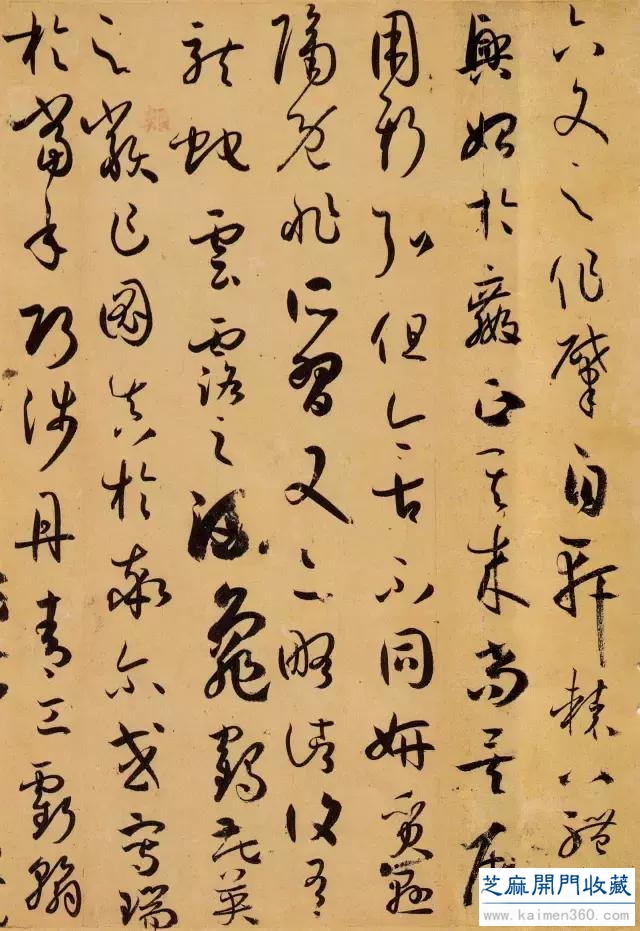 六文之作肇自軒轅八體
興始於嬴正其來尚矣厥
用斯弘但今古不同妍質懸
隔既非所習又亦略諸復有
龍蛇雲露之流龜鶴花英
之類乍圖真於率爾或寫瑞
於當年巧涉丹青工虧翰
芝麻開門收藏
www.kaimen360.com